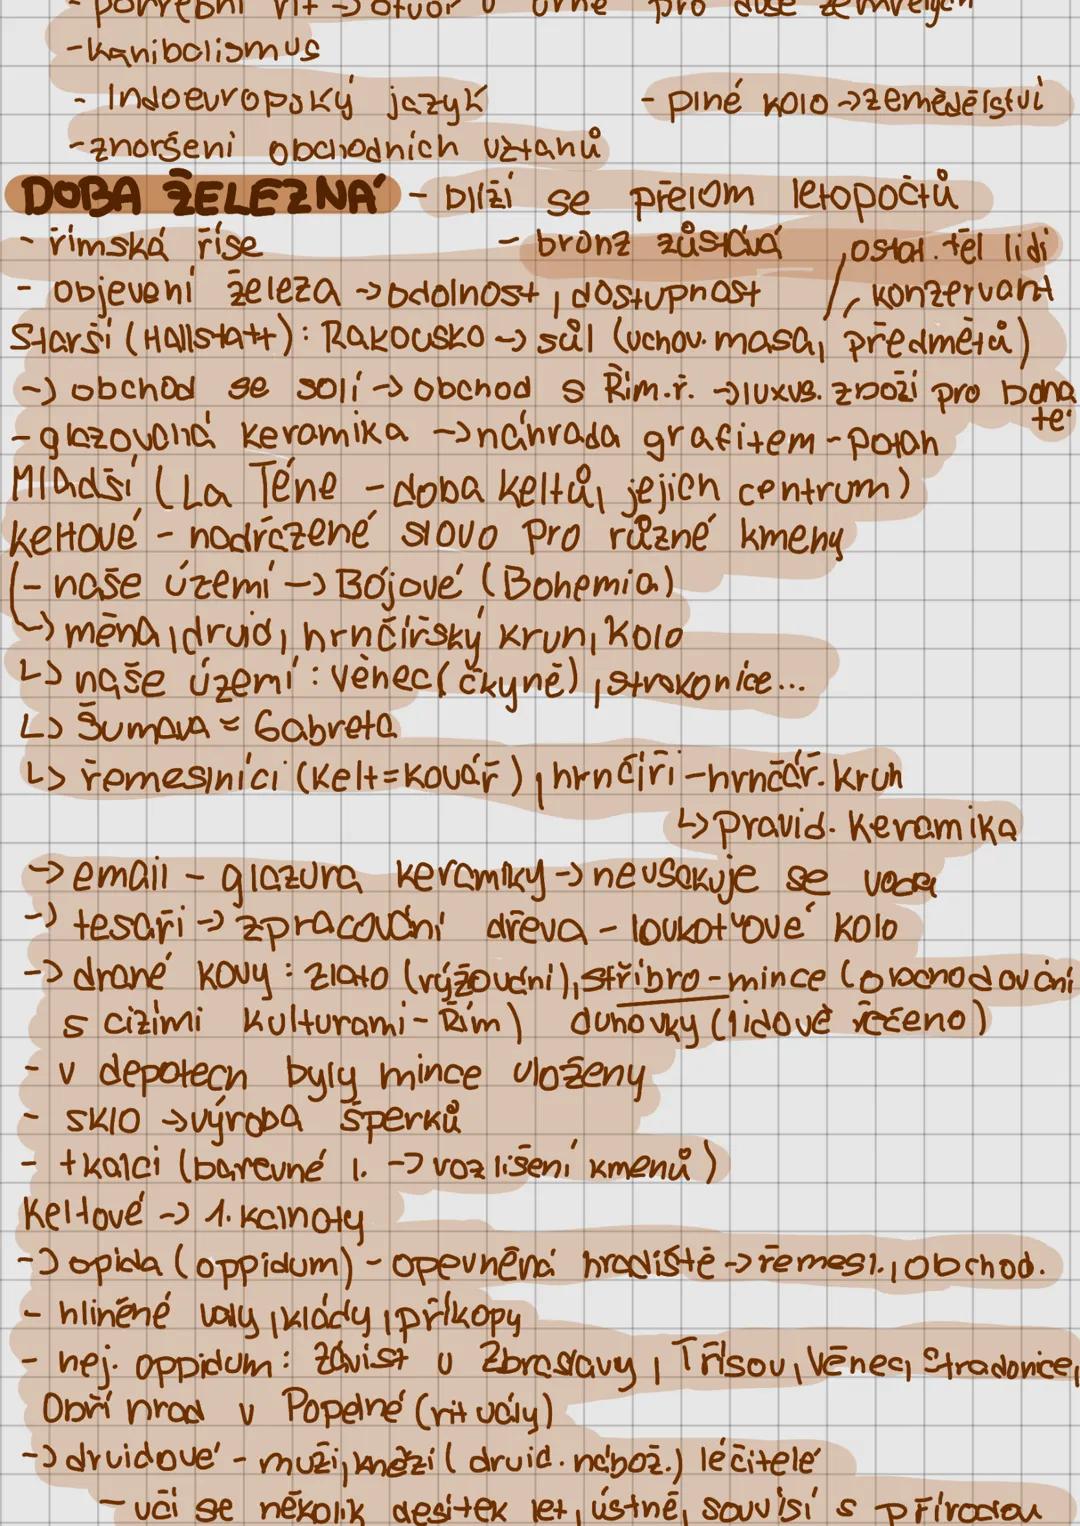 - pohřební rit -> otvor v urně pro duše zemřelých
- kanibalismus
- Indoevropský jazyk - plné kolo -> zemědělství
- zhoršení obchodních vztahů
DOBA ŽELEZNÁ - blíží se přelom letopočtů
- římská říše - bronz zůstává , ostat. těl lidí
- objevení železa -> odolnost, dostupnost /, konzervant
Starší (Hallstatt): Rakousko -> sůl (uchov. masa, předmětů)
-> obchod se solí -> obchod s Řím.ř. -> luxus. zboží pro boha
té
- glazovaná keramika -> náhrada grafitem - potah
Mladší (La Téne - doba keltů, jejich centrum)
Keltové - nadřazené slovo pro různé kmeny
(- naše území -> Bójové (Bohemia)
↳ měna, druid, hrnčířský kruh, kolo
↳ naše území: věnec (čkyně), strakonice...
↳ Šumava = Gabreta
↳ řemeslníci (Kelt = Kovář), hrnčíři - hrnčář. kruh
↳ pravid. keramika
-> email - glazura keramiky -> nevsakuje se voda
-> tesaři -> zpracování dřeva - loukoťové kolo
-> drahé kovy: zlato (rýžování), stříbro - mince (obchodování
s cizími kulturami - Řím) duhovky (lidově řečeno)
- v depotech byly mince uloženy
- sklo -> výroba šperků
- tkalci (barevné l. -> rozlišení kmenů)
Keltové -> 1. kalhoty
-> opida (oppidum) - opevněná hradiště -> řemesl., obchod.
- hliněné valy, klády, příkopy
- nej. oppidum: Závist u Zbraslavy, Třísov, Věnec, Stradonice,
Obří hrad v Popelné (rituály)
-> druidové - muži, kněží (druid. nábož.) léčitelé
- učí se několik desítek let, ústně, souvisí s přírodou